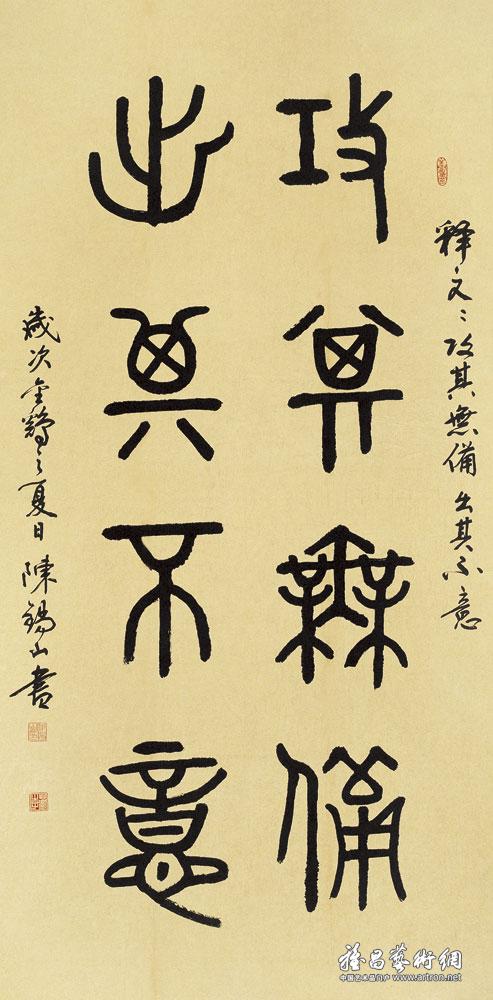 释文：攻其無備出其不意
攻其無備
出其不意
歲次金鷄之夏日陳錫山書
雅昌藝術網
中国艺术品门户 www.artron.net